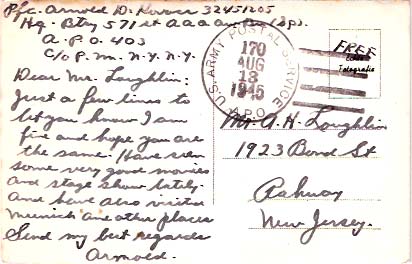 Pfc. Arnold D. Kovar 32451205
Hq. Btry 571 st A.a.a. aw Bn (Sp).
A.P.O. 403
C/o P.M. N.Y. N.Y.
Dear Mr. Loughlin:
Just a few lines to
let you know I am
fine and hope you are
the same. Have seen
some very good movies
and stage show lately.
and have also visited
Munich and other places
Send my best regards
Arnold.
U.S. ARMY POSTAL SERVICE
170
AUG
13
1945
A.P.O.
FREE
Mr. A. H. Loughlin
1923 Bond St
Rahway
New Jersey.